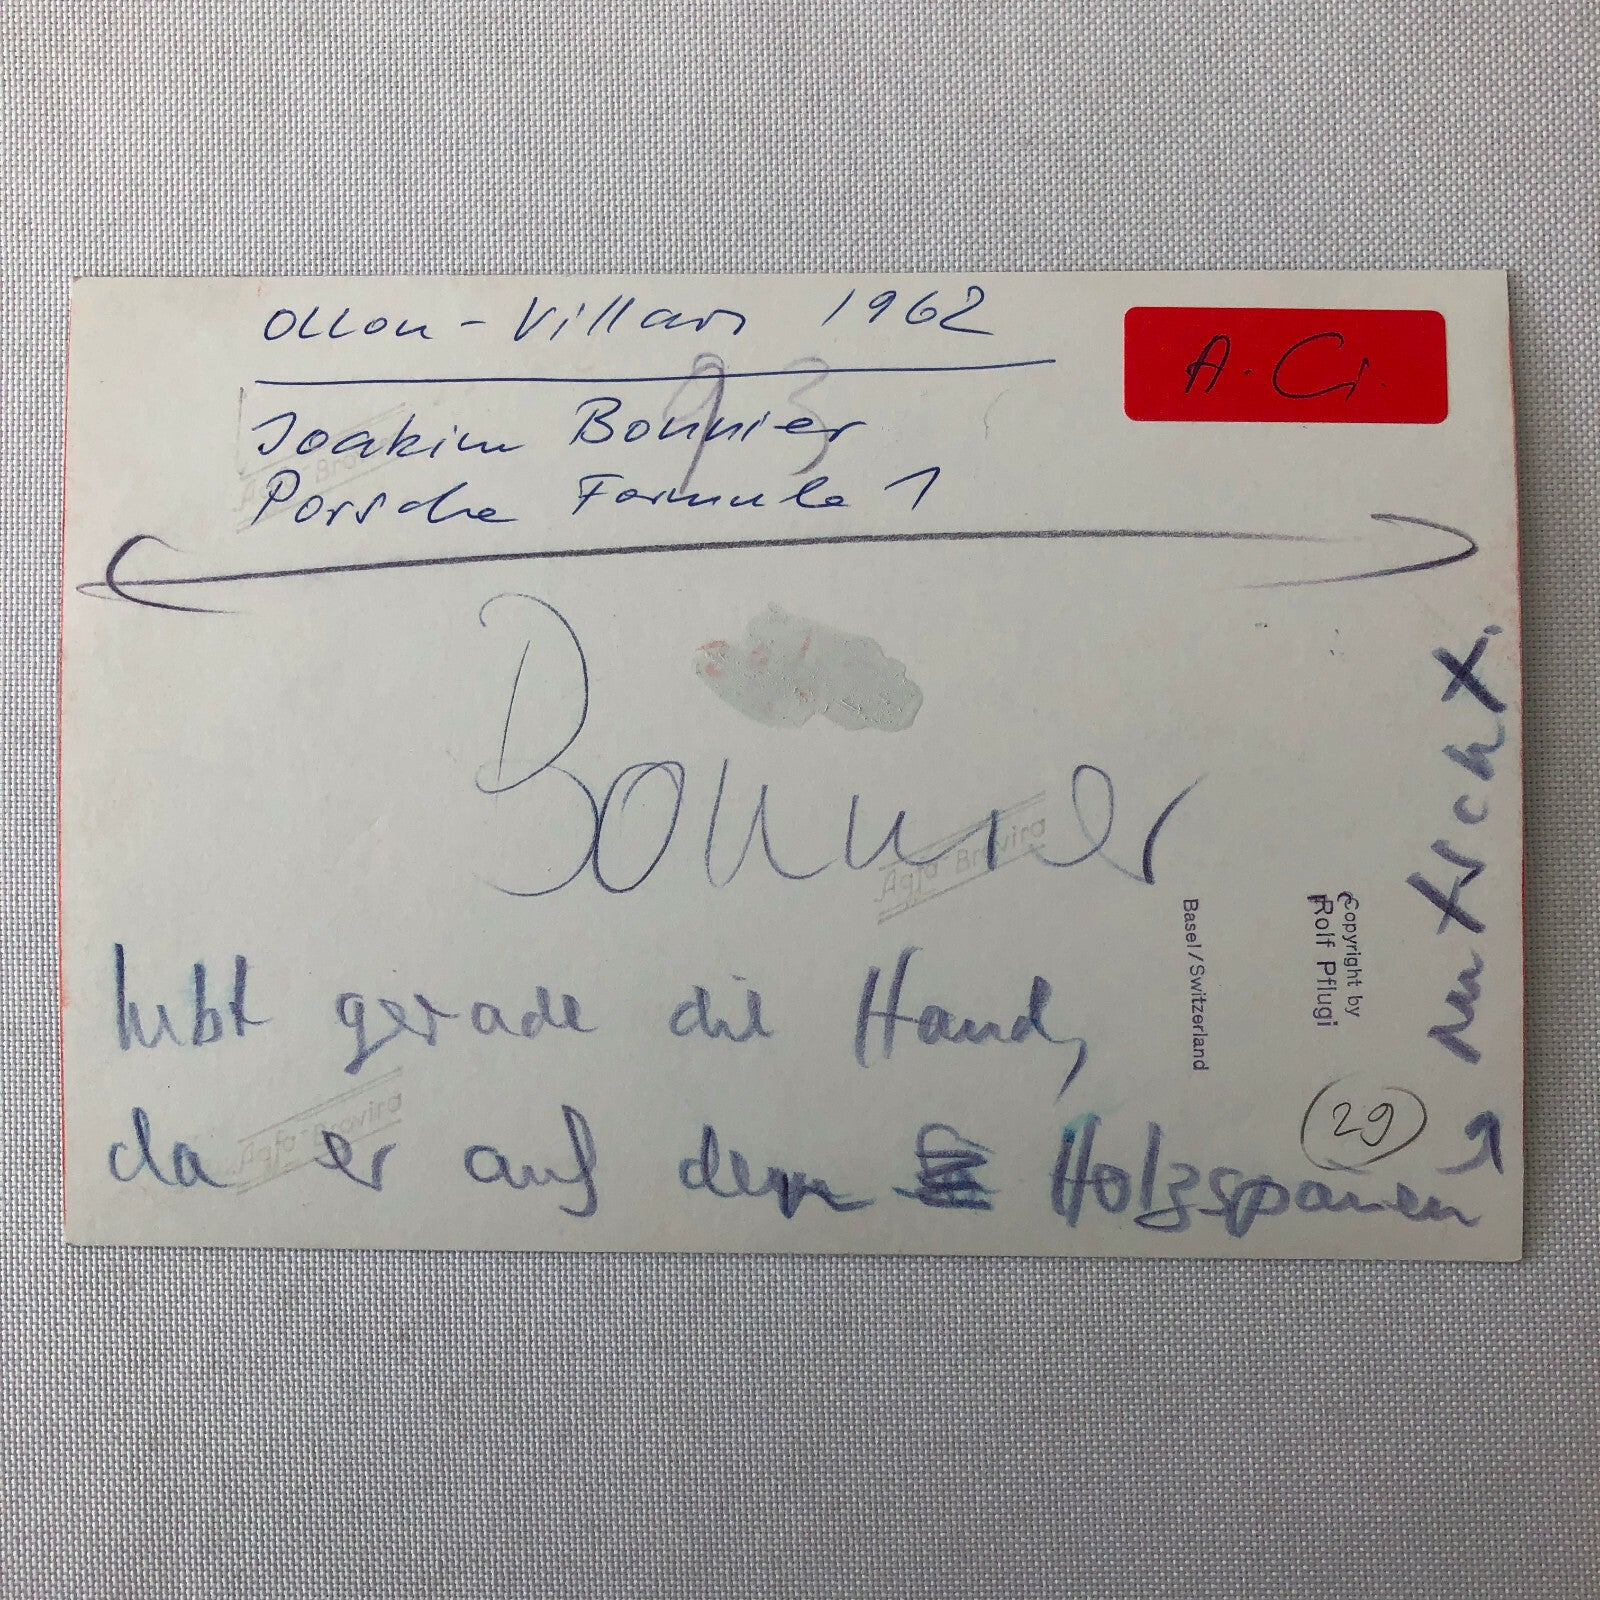 Ollon-Villars 1962
A. Ci.
93
Joakim Bonnier
Porsche Formule 1
Bonnier
hebt gerade die Hand,
da er auf dem Holzspänen
rutscht.
Copyright by
Rolf Pflugi
Basel/Switzerland
29
Agfa-Brovira
Agfa-Brovira
Agfa-Brovira